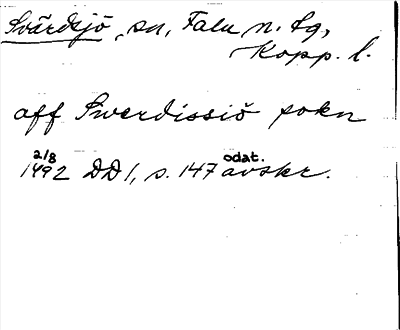 Svärdsjö, sn, Falu n. tg,
Kopp. l.
aff Swerdissiö sokn
2/8 odat.
1492 DD 1, s. 147 avskr.